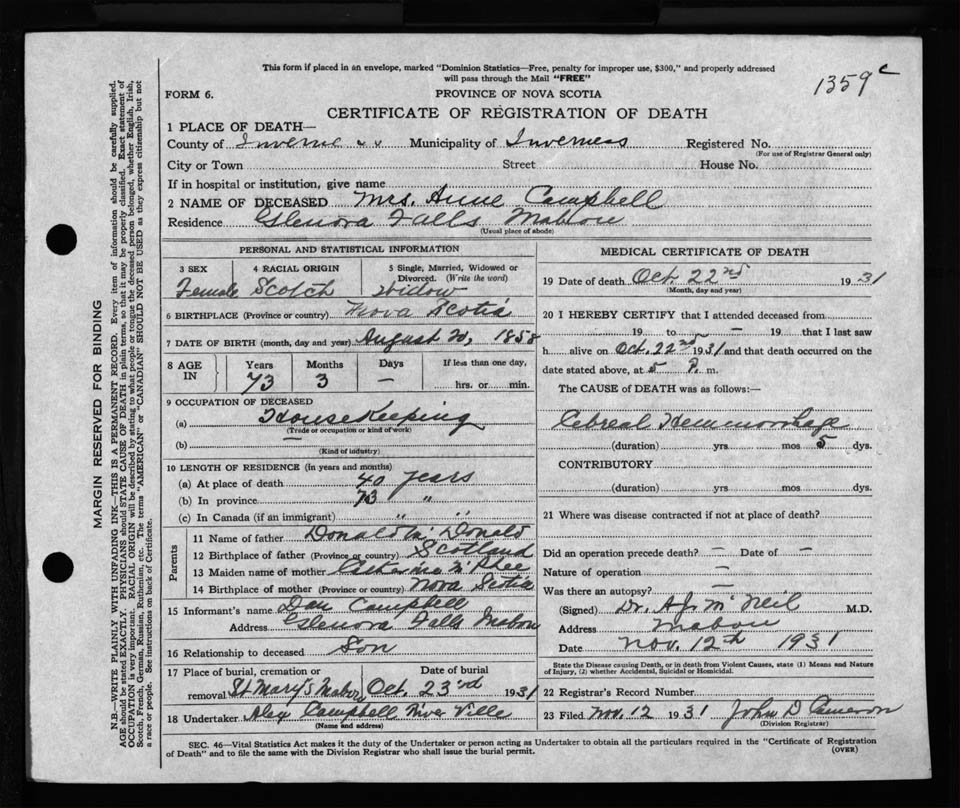 This form if placed in an envelope, marked "Dominion Statistics—Free, penalty for improper use, $300," and properly addressed
will pass through the Mail "FREE"
1359 c
FORM 6.
PROVINCE OF NOVA SCOTIA
CERTIFICATE OF REGISTRATION OF DEATH
1 PLACE OF DEATH—
County of Municipality of Inverness Registered No.
(For use of Registrar General only)
City or Town Street House No.
If in hospital or institution, give name
2 NAME OF DECEASED Mrs. Anne Campbell
Residence Glenora Falls Mabou
(Usual place of abode)
PERSONAL AND STATISTICAL INFORMATION
3 SEX 4 RACIAL ORIGIN 5 Single, Married, Widowed or
Divorced. (Write the word)
Female Scotch Widow
6 BIRTHPLACE (Province or country) Nova Scotia
7 DATE OF BIRTH (month, day and year) August 20, 1858
8 AGE IN Years Months Days If less than one day,
73 3 — hrs. or min.
9 OCCUPATION OF DECEASED
(a) House Keeping
(Trade or occupation or kind of work)
(b) —
(Kind of industry)
10 LENGTH OF RESIDENCE (in years and months)
(a) At place of death 40 years
(b) In province 73 "
(c) In Canada (if an immigrant) " "
Parents
11 Name of father Donald Mc Donald
12 Birthplace of father (Province or country) Scotland
13 Maiden name of mother Mc Phee
14 Birthplace of mother (Province or country) Nova Scotia
15 Informant's name Dan Campbell
Address Glenora Falls Mabou
16 Relationship to deceased Son
17 Place of burial, cremation or Date of burial
removal St Mary's Mabou Oct. 23rd 1931
18 Undertaker Alex Campbell River Ville
(Name and address)
MEDICAL CERTIFICATE OF DEATH
19 Date of death Oct. 22nd 1931
(Month, day and year)
20 I HEREBY CERTIFY that I attended deceased from
19 to — 19 that I last saw
h alive on Oct. 22nd 1931 and that death occurred on the
date stated above, at 5 P. m.
The CAUSE of DEATH was as follows:—
Cebreal Hemmorrhage
(duration) yrs mos 5 dys.
CONTRIBUTORY
(duration) yrs mos dys.
21 Where was disease contracted if not at place of death?
Did an operation precede death? — Date of —
Nature of operation —
Was there an autopsy? —
(Signed) Dr. A.J. McNeil M.D.
Address Mabou
Date Nov. 12th 1931
State the Disease causing Death, or in death from Violent Causes, state (1) Means and Nature
of Injury, (2) whether Accidental, Suicidal or Homicidal.
22 Registrar's Record Number
23 Filed Nov. 12 1931 John D Cameron
(Division Registrar)
SEC. 46—Vital Statistics Act makes it the duty of the Undertaker or person acting as Undertaker to obtain all the particulars required in the "Certificate of Registration
of Death" and to file the same with the Division Registrar who shall issue the burial permit.
(OVER)
MARGIN RESERVED FOR BINDING
N.B.—WRITE PLAINLY, WITH UNFADING INK—THIS IS A PERMANENT RECORD. Every item of information should be carefully supplied.
AGE should be stated EXACTLY. PHYSICIANS should STATE CAUSE OF DEATH in plain terms, so that it may be properly classified. Exact statement of
OCCUPATION is very important. RACIAL ORIGIN will be described by stating to what people or tongue the deceased person belonged, whether English, Irish,
Scotch, French, German, Russian, Ruthenian, etc. The terms "AMERICAN" or "CANADIAN" SHOULD NOT BE USED as they express citizenship but not
a race or people. See instructions on back of Certificate.